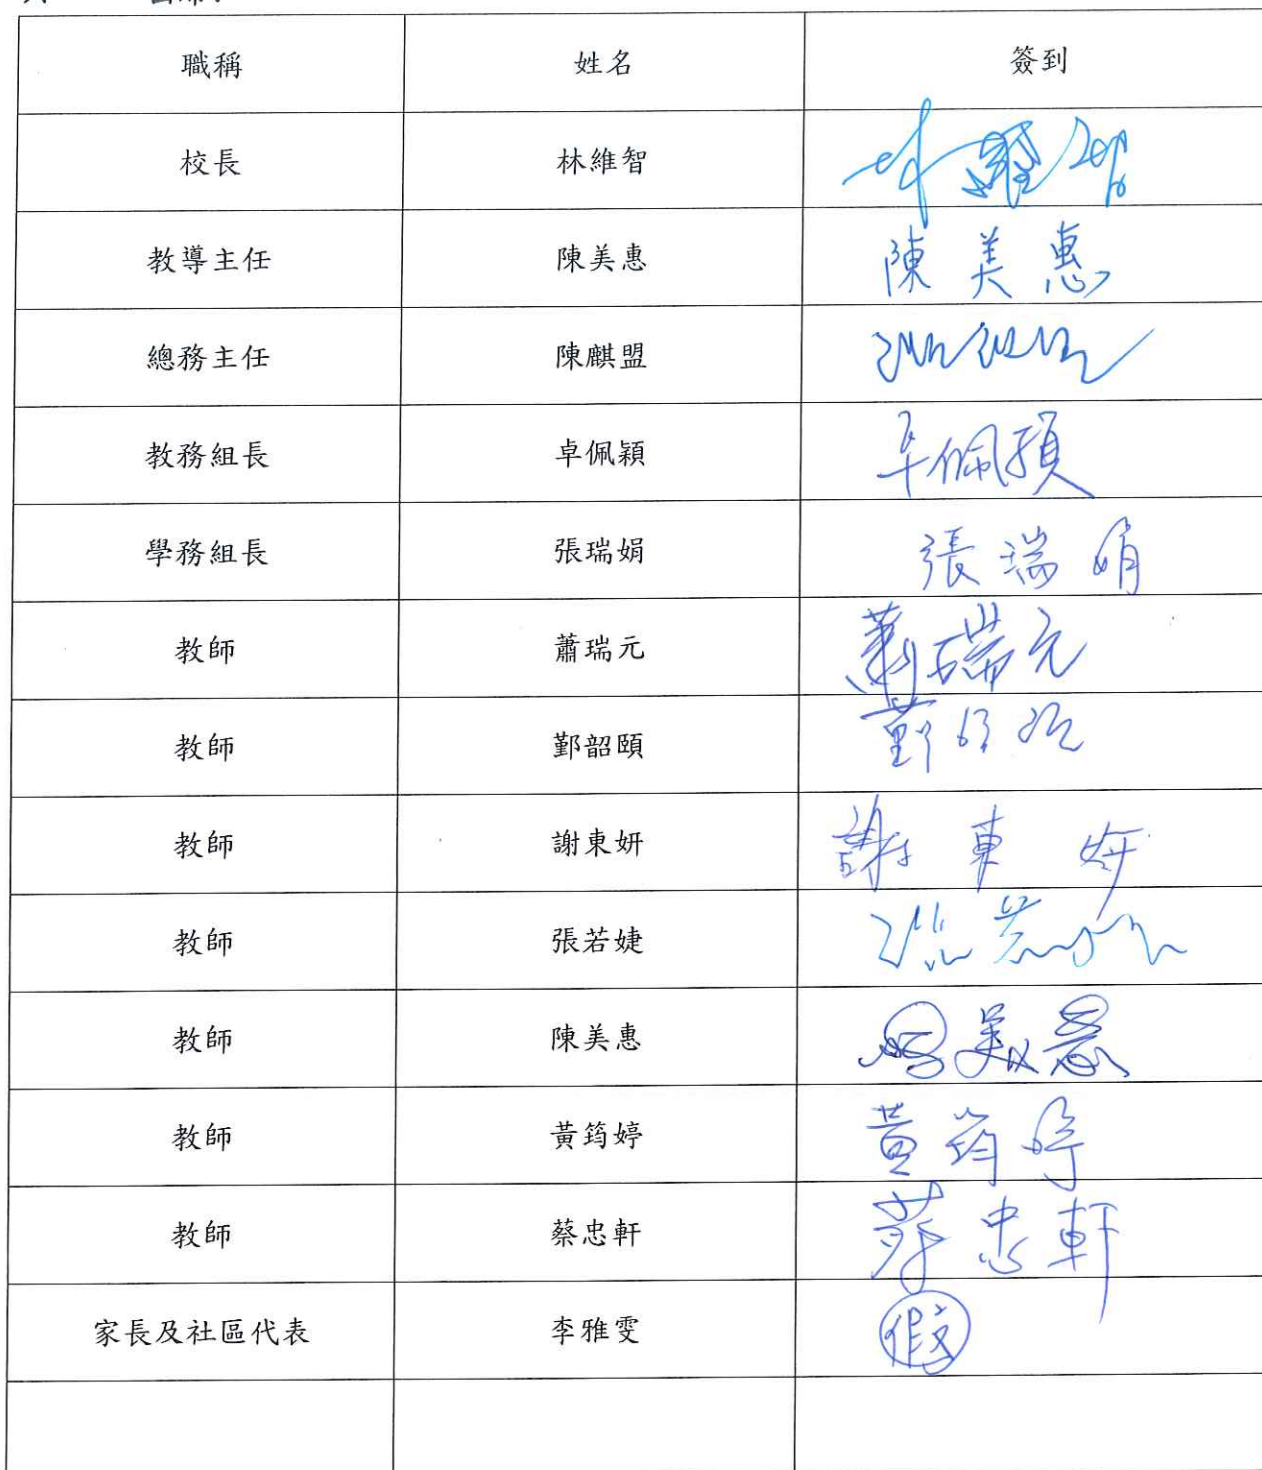 職稱 姓名 簽到
校長 林維智 林維智
教導主任 陳美惠 陳美惠
總務主任 陳麒盟
教務組長 卓佩穎 卓佩穎
學務組長 張瑞娟 張瑞娟
教師 蕭瑞元 蕭瑞元
教師 鄞韶頤
教師 謝東妍 謝東妍
教師 張若婕
教師 陳美惠 陳美惠
教師 黃筠婷 黃筠婷
教師 蔡忠軒 蔡忠軒
家長及社區代表 李雅雯 假